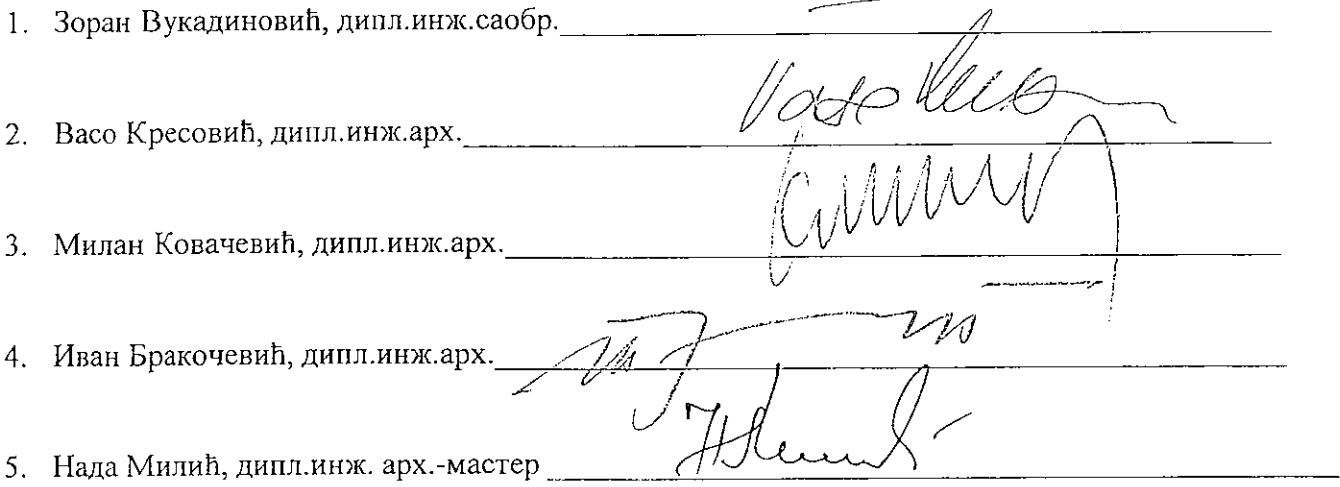 1. Зоран Вукадиновић, дипл.инж.саобр.
2. Васо Кресовић, дипл.инж.арх.
3. Милан Ковачевић, дипл.инж.арх.
4. Иван Бракочевић, дипл.инж.арх.
5. Нада Милић, дипл.инж. арх.-мастер